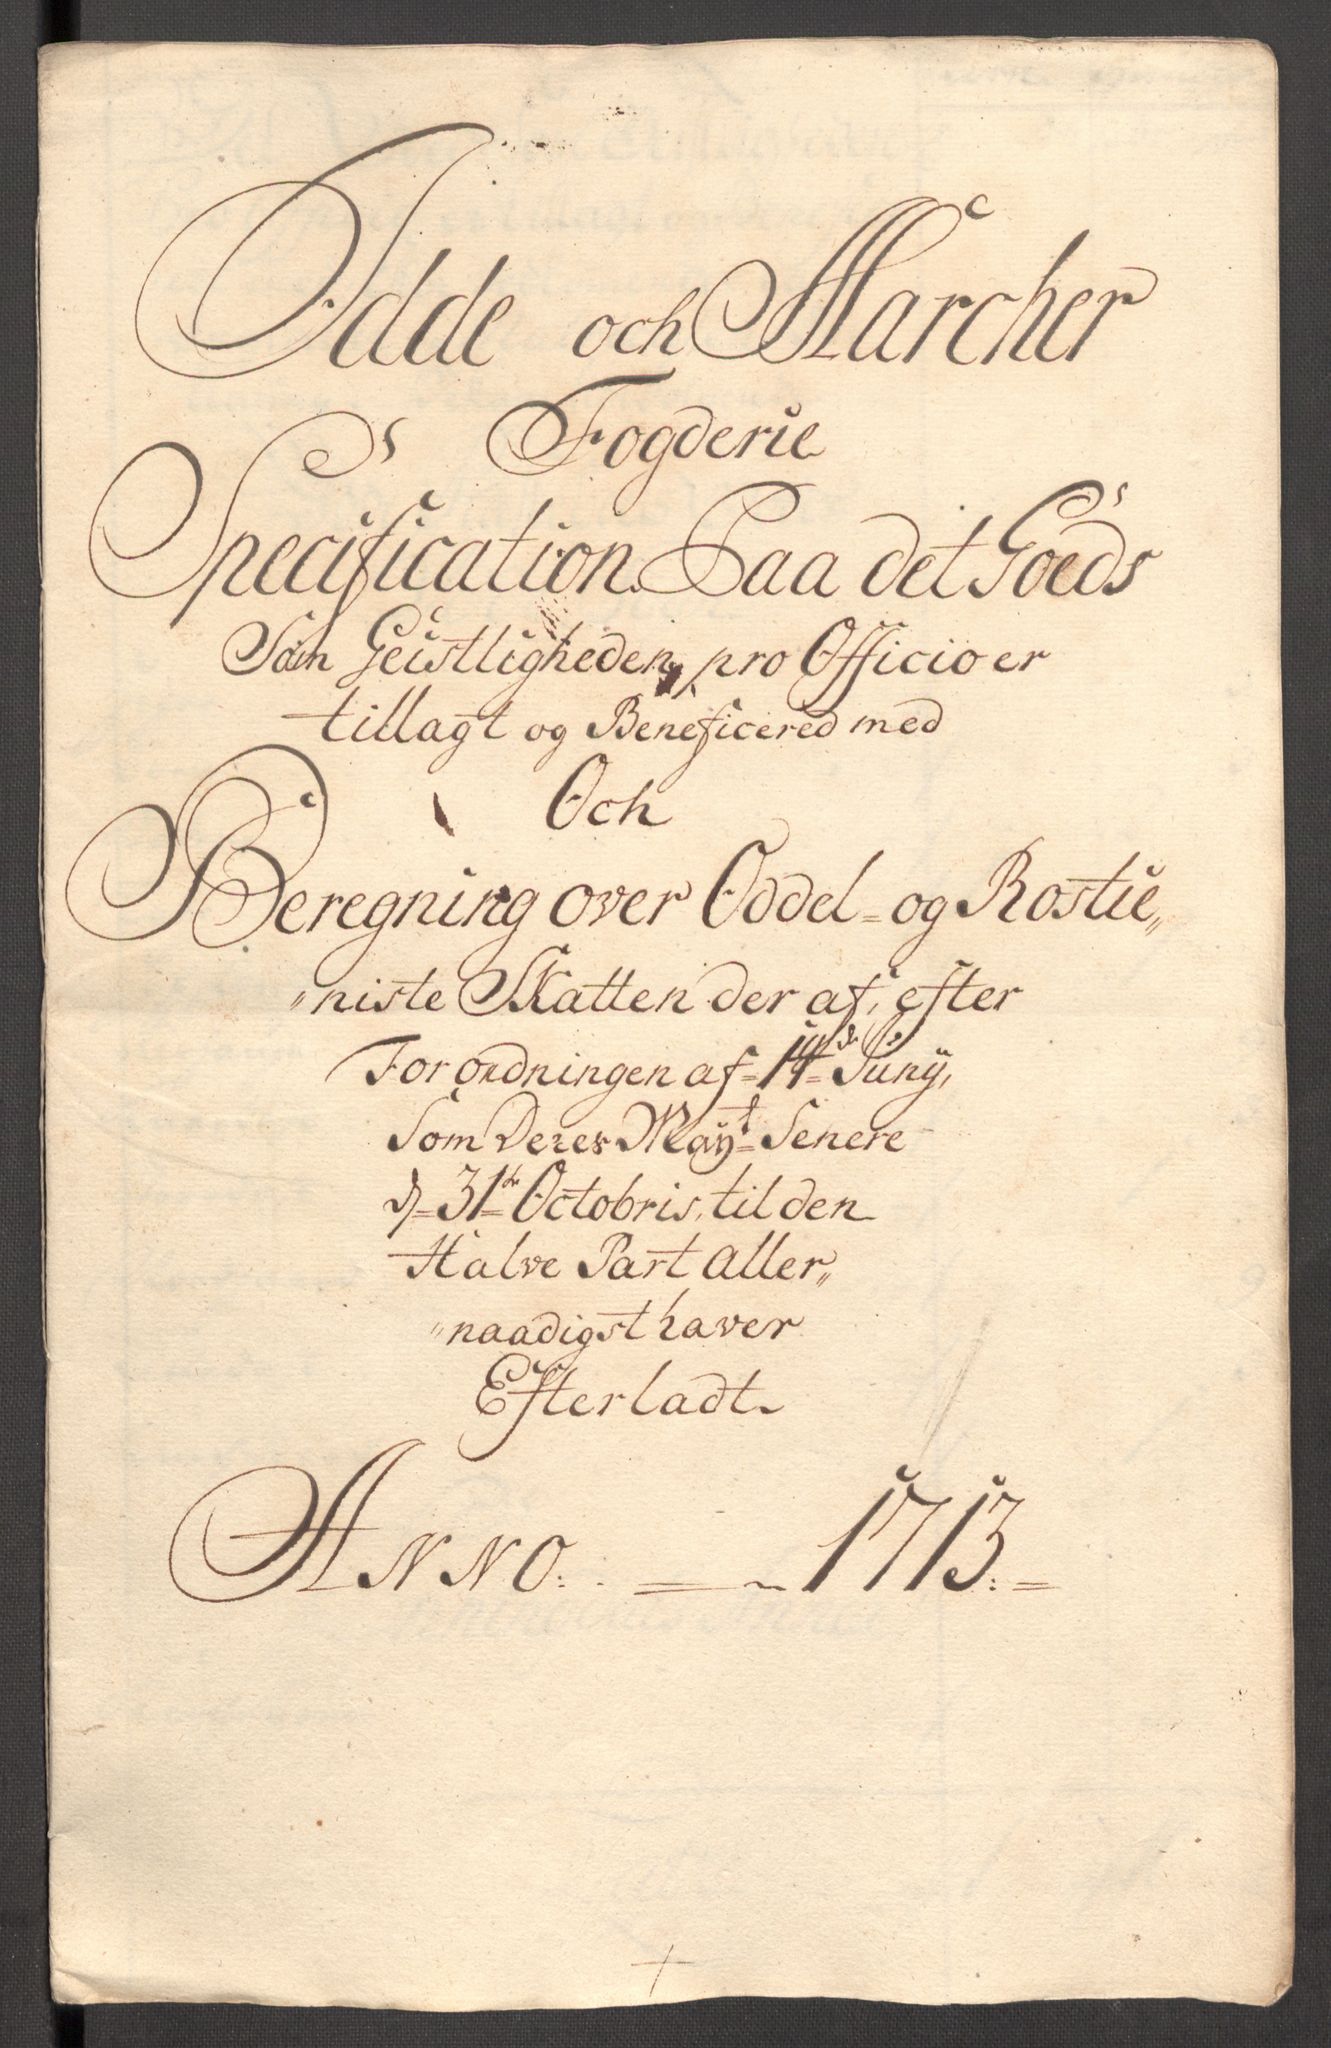 Idde och Marcher
Fogderie
Specification Paa det Goeds
Som Geistligheden pro Officio er
tillagt og Beneficered med
Och
Beregning over Oddel- og Rostie„
„niste Skatten der af, efter
Forordningen af 14de Juny,
Som Deres Mayt Senere
d 31te Octobris, til den
Halve Part aller„
„naadigst haver
Efterladt.
ANNO: 1713